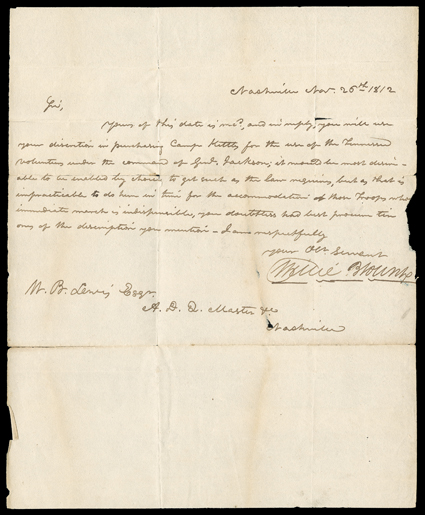 Nashville Nov. 26th 1812
Sir,
Yours of this date is recd, and in reply, you will use
your discretion in purchasing Camp Kettles for the use of the Tennessee
Volunteers under the command of Genl. Jackson; it would be most desir-
able to be enabled by choice to get such as the law requires, but as that is
impracticable to do here in time for the accommodation of those Troops whose
immediate march is indispensible, you doubtless had best procure tin
ones of the discription you mention - I am respectfully
your Obt Servant
Willie Blount
W. B. Lewis Esqr.
A. D. Q. Master &c
Nashville